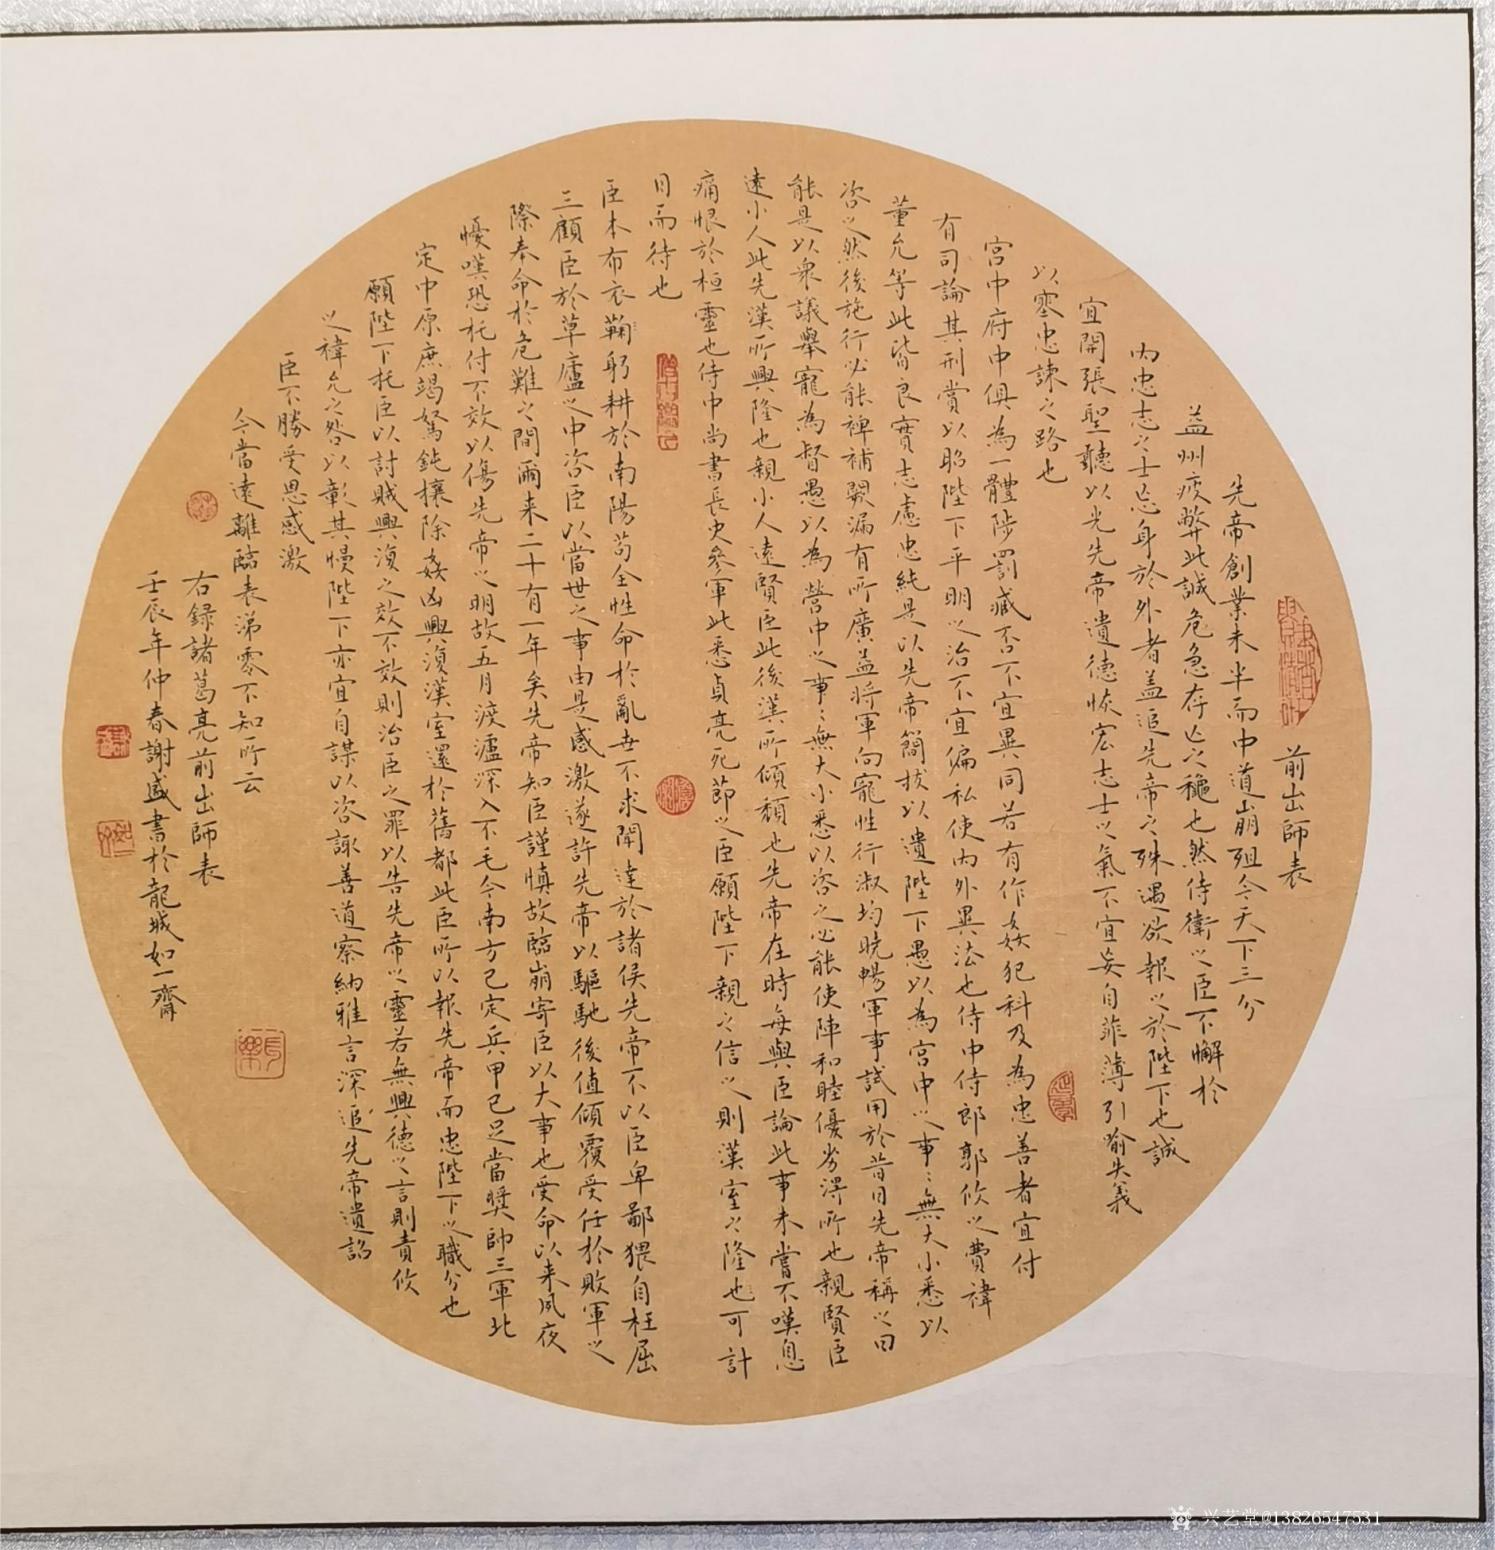 前出師表
先帝創業未半而中道崩殂今天下三分
益州疲弊此誠危急存亡之穐也然侍衛之臣不懈於
內忠志之士忘身於外者蓋追先帝之殊遇欲報之於陛下也誠
宜開張聖聽以光先帝遺德恢宏志士之氣不宜妄自菲薄引喻失義
以塞忠諫之路也
宮中府中俱為一體陟罰臧否不宜異同若有作姦犯科及為忠善者宜付
有司論其刑賞以昭陛下平明之治不宜偏私使內外異法也侍中侍郎郭攸之費禕
董允等此皆良實志慮忠純是以先帝簡拔以遺陛下愚以為宮中之事〻無大小悉以
咨之然後施行必能裨補闕漏有所廣益將軍向寵性行淑均曉暢軍事試用於昔日先帝稱之曰
能是以衆議舉寵為督愚以為營中之事〻無大小悉以咨之必能使陣和睦優劣得所也親賢臣
遠小人此先漢所興隆也親小人遠賢臣此後漢所傾頹也先帝在時每與臣論此事未嘗不嘆息
痛恨於桓靈也侍中尚書長史參軍此悉貞亮死節之臣願陛下親之信之則漢室之隆也可計
日而待也
臣本布衣鞠躬耕於南陽苟全性命於亂世不求聞達於諸侯先帝不以臣卑鄙猥自枉屈
三顧臣於草廬之中咨臣以當世之事由是感激遂許先帝以驅馳後值傾覆受任於敗軍之
際奉命於危難之間爾来二十有一年矣先帝知臣謹慎故臨崩寄臣以大事也受命以来夙夜
憂嘆恐托付不效以傷先帝之明故五月渡瀘深入不毛今南方已定兵甲已足當獎帥三軍北
定中原庶竭駑鈍攘除姦凶興復漢室還於舊都此臣所以報先帝而忠陛下之職分也
願陛下托臣以討賊興復之效不效則治臣之罪以告先帝之靈若無興德之言則責攸
之禕允之咎以彰其慢陛下亦宜自謀以咨諏善道察納雅言深追先帝遺詔
臣不勝受恩感激
今當遠離臨表涕零不知所云
右錄諸葛亮前出師表
壬辰年仲春謝盛書於龍城如一齋
兴艺堂@13826547531